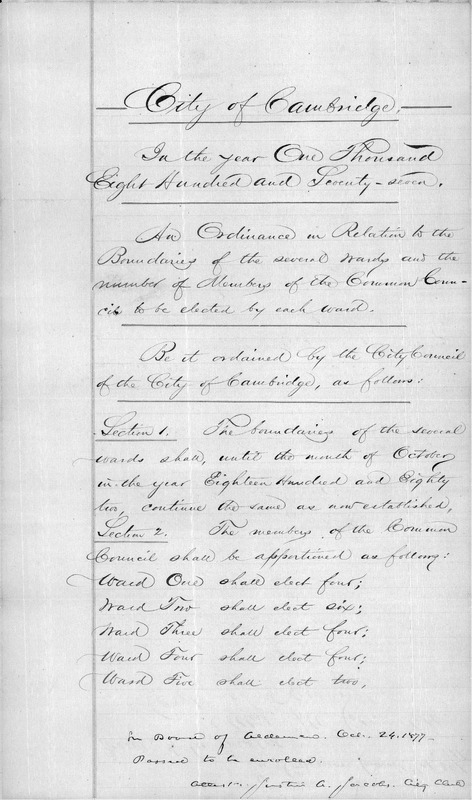 City of Cambridge.
In the year One Thousand
Eight Hundred and Seventy-seven.
An Ordinance in Relation to the
Boundaries of the several wards and the
number of Members of the Common Coun-
cil to be elected by each ward.
Be it ordained by the City Council
of the City of Cambridge, as follows:
Section 1. The boundaries of the several
wards shall, until the month of October
in the year Eighteen Hundred and Eighty
two, continue the same as now established.
Section 2. The members of the Common
Council shall be apportioned as follows:
Ward One shall elect four;
Ward Two shall elect six;
Ward Three shall elect four;
Ward Four shall elect four;
Ward Five shall elect two,
In Board of Aldermen. Oct. 24. 1877
Passed to be enrolled.
Attest. Justin A. Jacobs. City Clerk